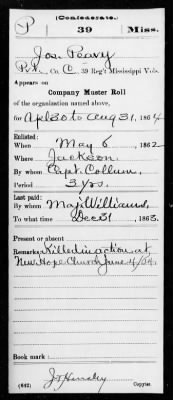 (Confederate.)
P 39 Miss.
Jos. Peavy
Pvt., Co. C, 39 Reg't Mississippi Vols.
Appears on
Company Muster Roll
of the organization named above,
for Apl 30 to Aug 31, 1864
Enlisted:
When May 6, 1862
Where Jackson
By whom Capt. Collum,
Period 3 yrs.
Last paid:
By whom Maj. Williams,
To what time Dec 31, 1863.
Present or absent
Remarks: Killed in action at
New Hope Church June 4/64.
Book mark:
(642) Copyist.